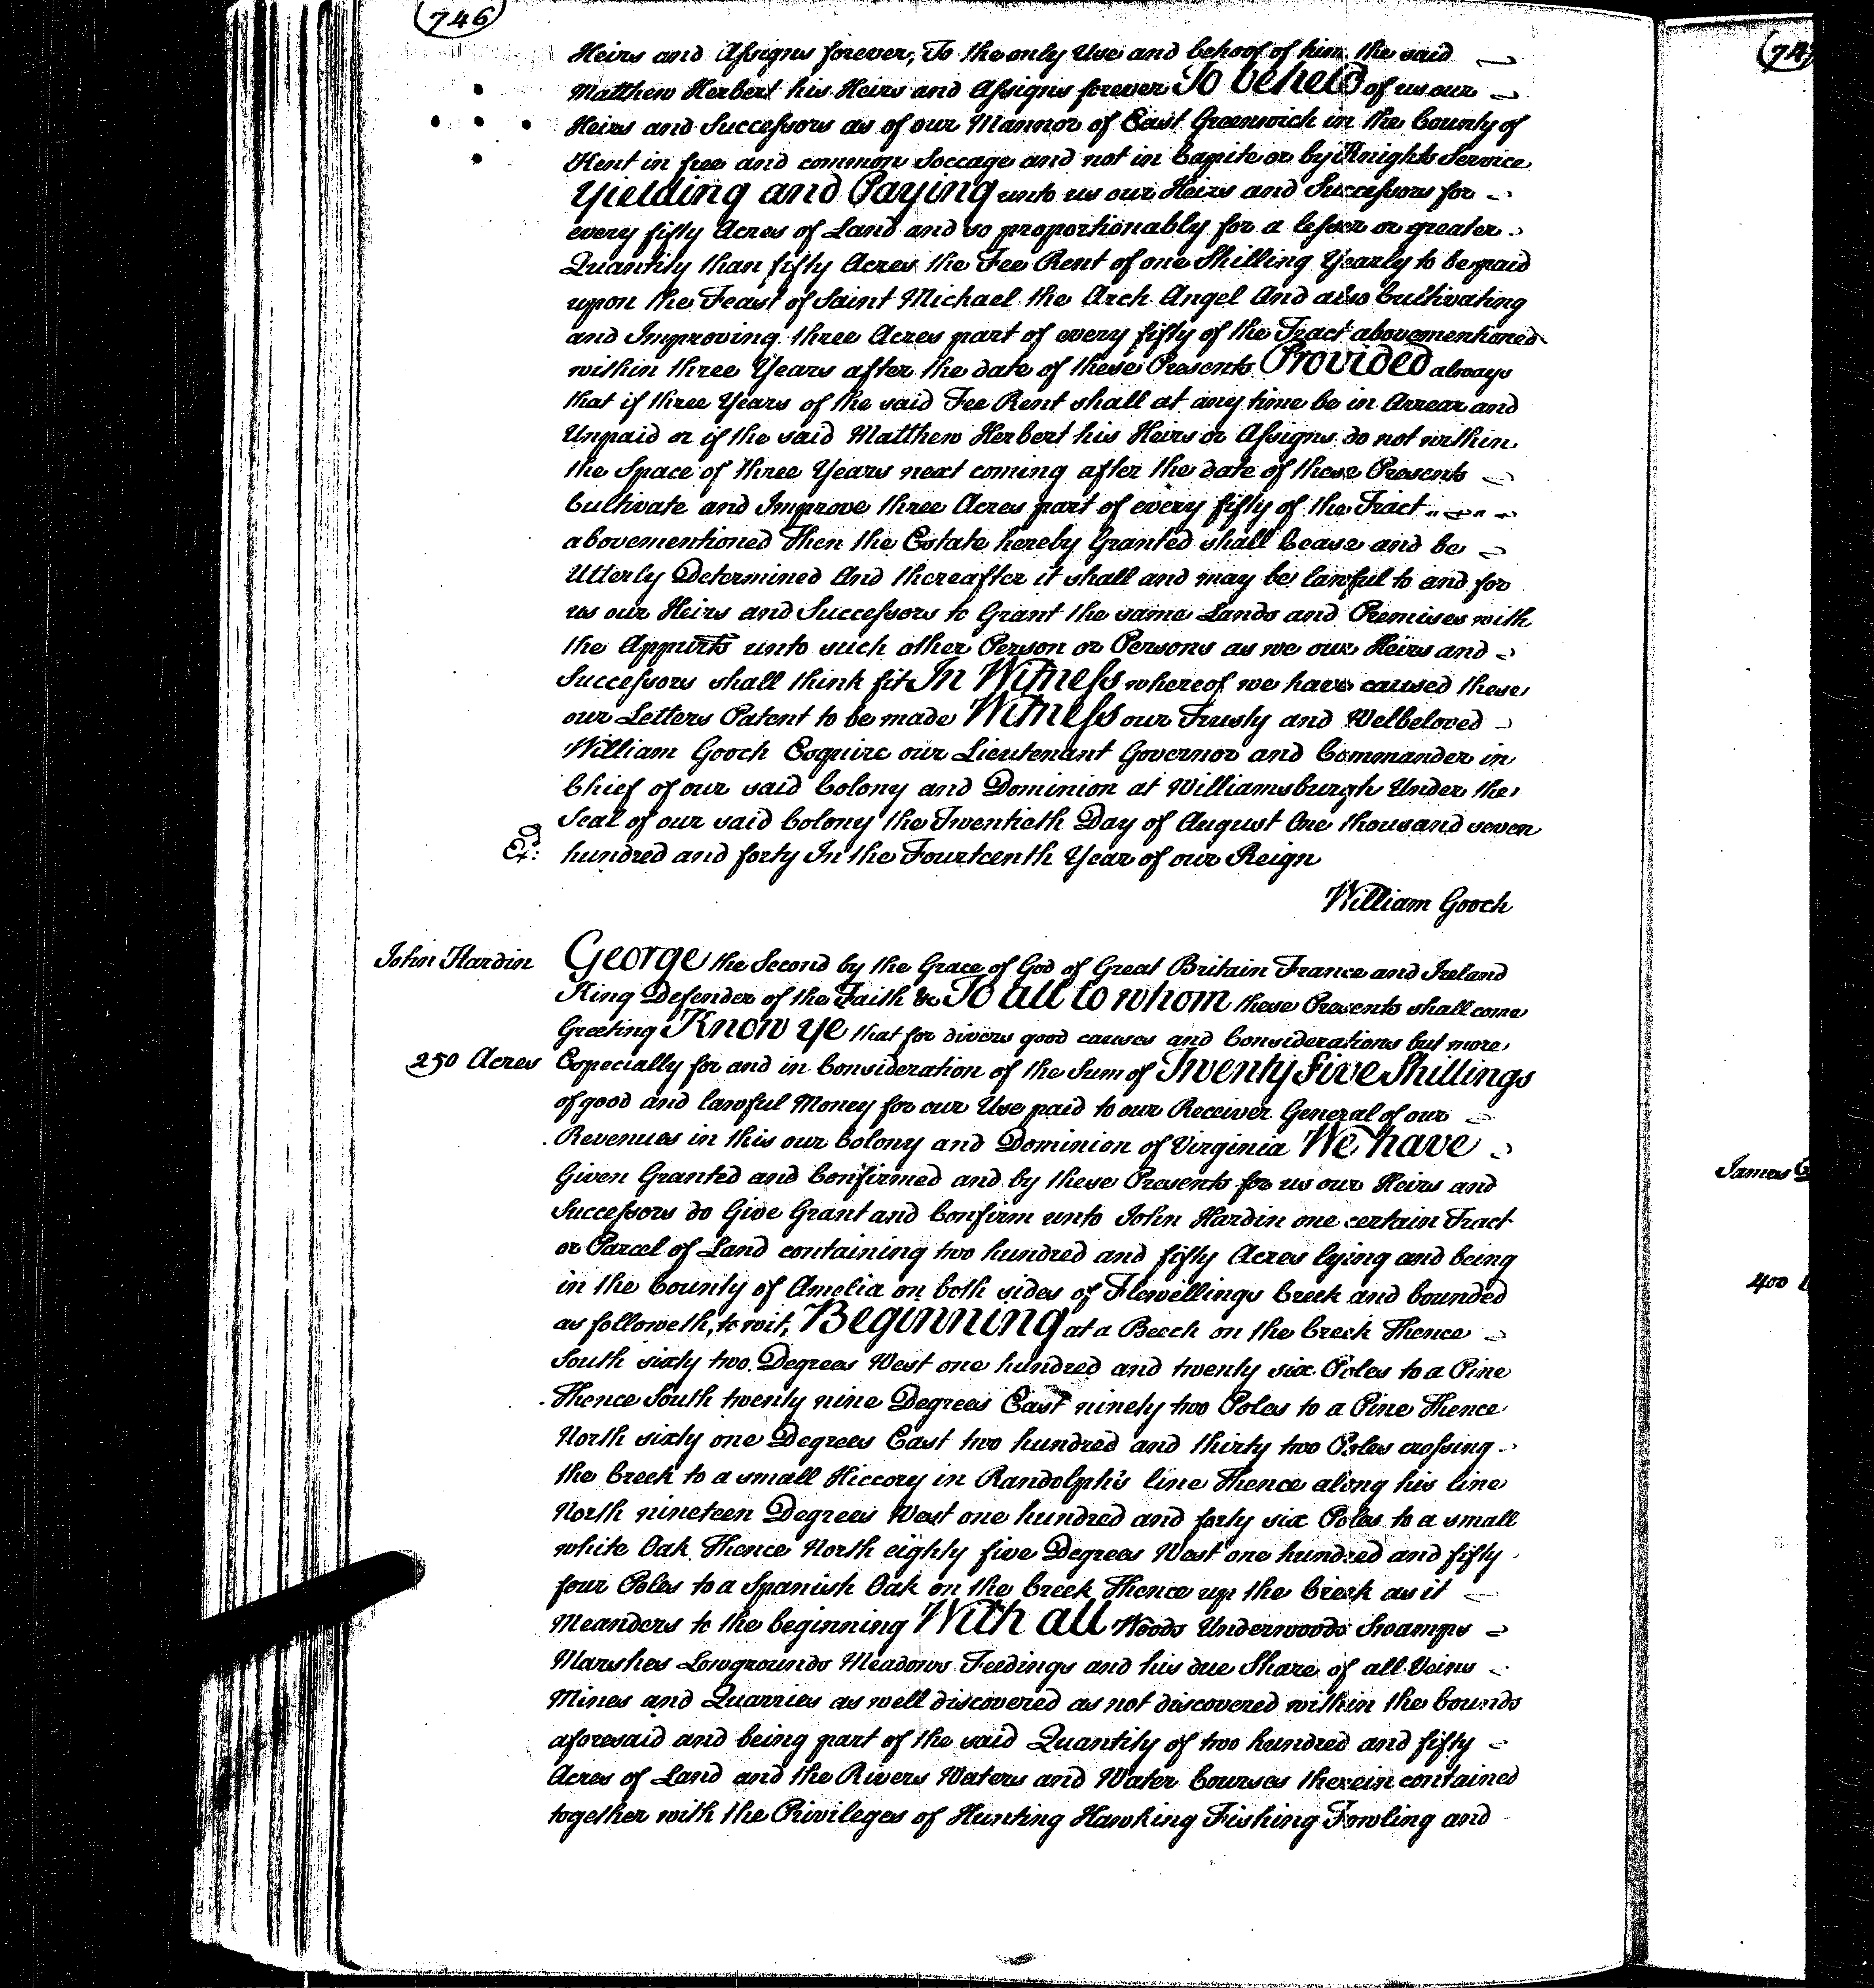 746
Heirs and Assigns forever, To the only Use and behoof of him the said
Matthew Herbert his Heirs and Assigns forever To be held of us our
Heirs and Successors as of our Mannor of East Greenwich in the County of
Kent in free and common Soccage and not in Capite or by Knights Service
Yielding and Paying unto us our Heirs and Successors for
every fifty Acres of Land and so proportionably for a lesser or greater
Quantity than fifty Acres the Fee Rent of one Shilling Yearly to be paid
upon the Feast of Saint Michael the Arch Angel And also Cultivating
and Improving three Acres part of every fifty of the Tract abovementioned
within three Years after the date of these Presents Provided always
that if three Years of the said Fee Rent shall at any time be in Arrear and
Unpaid or if the said Matthew Herbert his Heirs or Assigns do not within
the Space of three Years next coming after the date of these Presents
Cultivate and Improve three Acres part of every fifty of the Tract
abovementioned Then the Estate hereby Granted shall Cease and be
Utterly Determined And thereafter it shall and may be lawful to and for
us our Heirs and Successors to Grant the same Lands and Premises with
the Appurts unto such other Person or Persons as we our Heirs and
Successors shall think fit In Witness whereof we have caused these
our Letters Patent to be made Witness our Trusty and Welbeloved
William Gooch Esquire our Lieutenant Governor and Commander in
Chief of our said Colony and Dominion at Williamsburgh Under the
Seal of our said Colony the Twentieth Day of August One thousand seven
Exd: hundred and forty In the Fourteenth Year of our Reign
William Gooch
John Hardin George the Second by the Grace of God of Great Britain France and Ireland
King Defender of the Faith &c To all to whom these Presents shall come
Greeting Know ye that for divers good causes and Considerations but more
250 Acres Especially for and in Consideration of the Sum of Twenty Five Shillings
of good and lawful Money for our Use paid to our Receiver General of our
Revenues in this our Colony and Dominion of Virginia We have
Given Granted and Confirmed and by these Presents for us our Heirs and
Successors do Give Grant and Confirm unto John Hardin one certain Tract
or Parcel of Land containing two hundred and fifty Acres lying and being
in the County of Amelia on both sides of Flewellings Creek and bounded
as followeth, to wit, Beginning at a Beech on the Creek Thence
South sixty two Degrees West one hundred and twenty six Poles to a Pine
Thence South twenty nine Degrees East ninety two Poles to a Pine Thence
North sixty one Degrees East two hundred and thirty two Poles crossing
the Creek to a small Hiccory in Randolph's line Thence along his line
North nineteen Degrees West one hundred and forty six Poles to a small
white Oak Thence North eighty five Degrees West one hundred and fifty
four Poles to a Spanish Oak on the Creek Thence up the Creek as it
Meanders to the beginning With all Woods Underwoods Swamps
Marshes Lowgrounds Meadows Feedings and his due Share of all Veins
Mines and Quarries as well discovered as not discovered within the bounds
aforesaid and being part of the said Quantity of two hundred and fifty
Acres of Land and the Rivers Waters and Water Courses therein contained
together with the Privileges of Hunting Hawking Fishing Fowling and
James
400